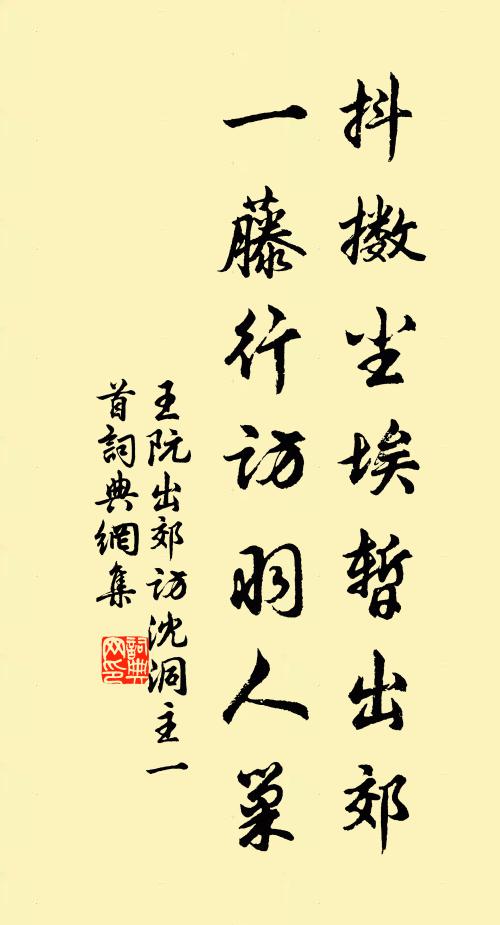 抖擻尘埃暫出郊
一藤行访羽人巢
王阮出郊访沈洞主一
首詞典網集
詞典
网印